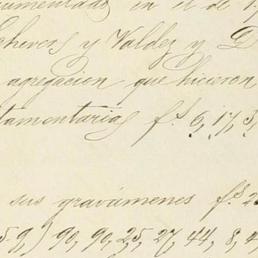 cumentado en el de 1
chevers y Valdez y D
agregacion que hicieron
tamentarias fs 6, 17, 3
sus gravámenes fs 2
5-9) 90, 90, 25, 27, 44, 8, 4